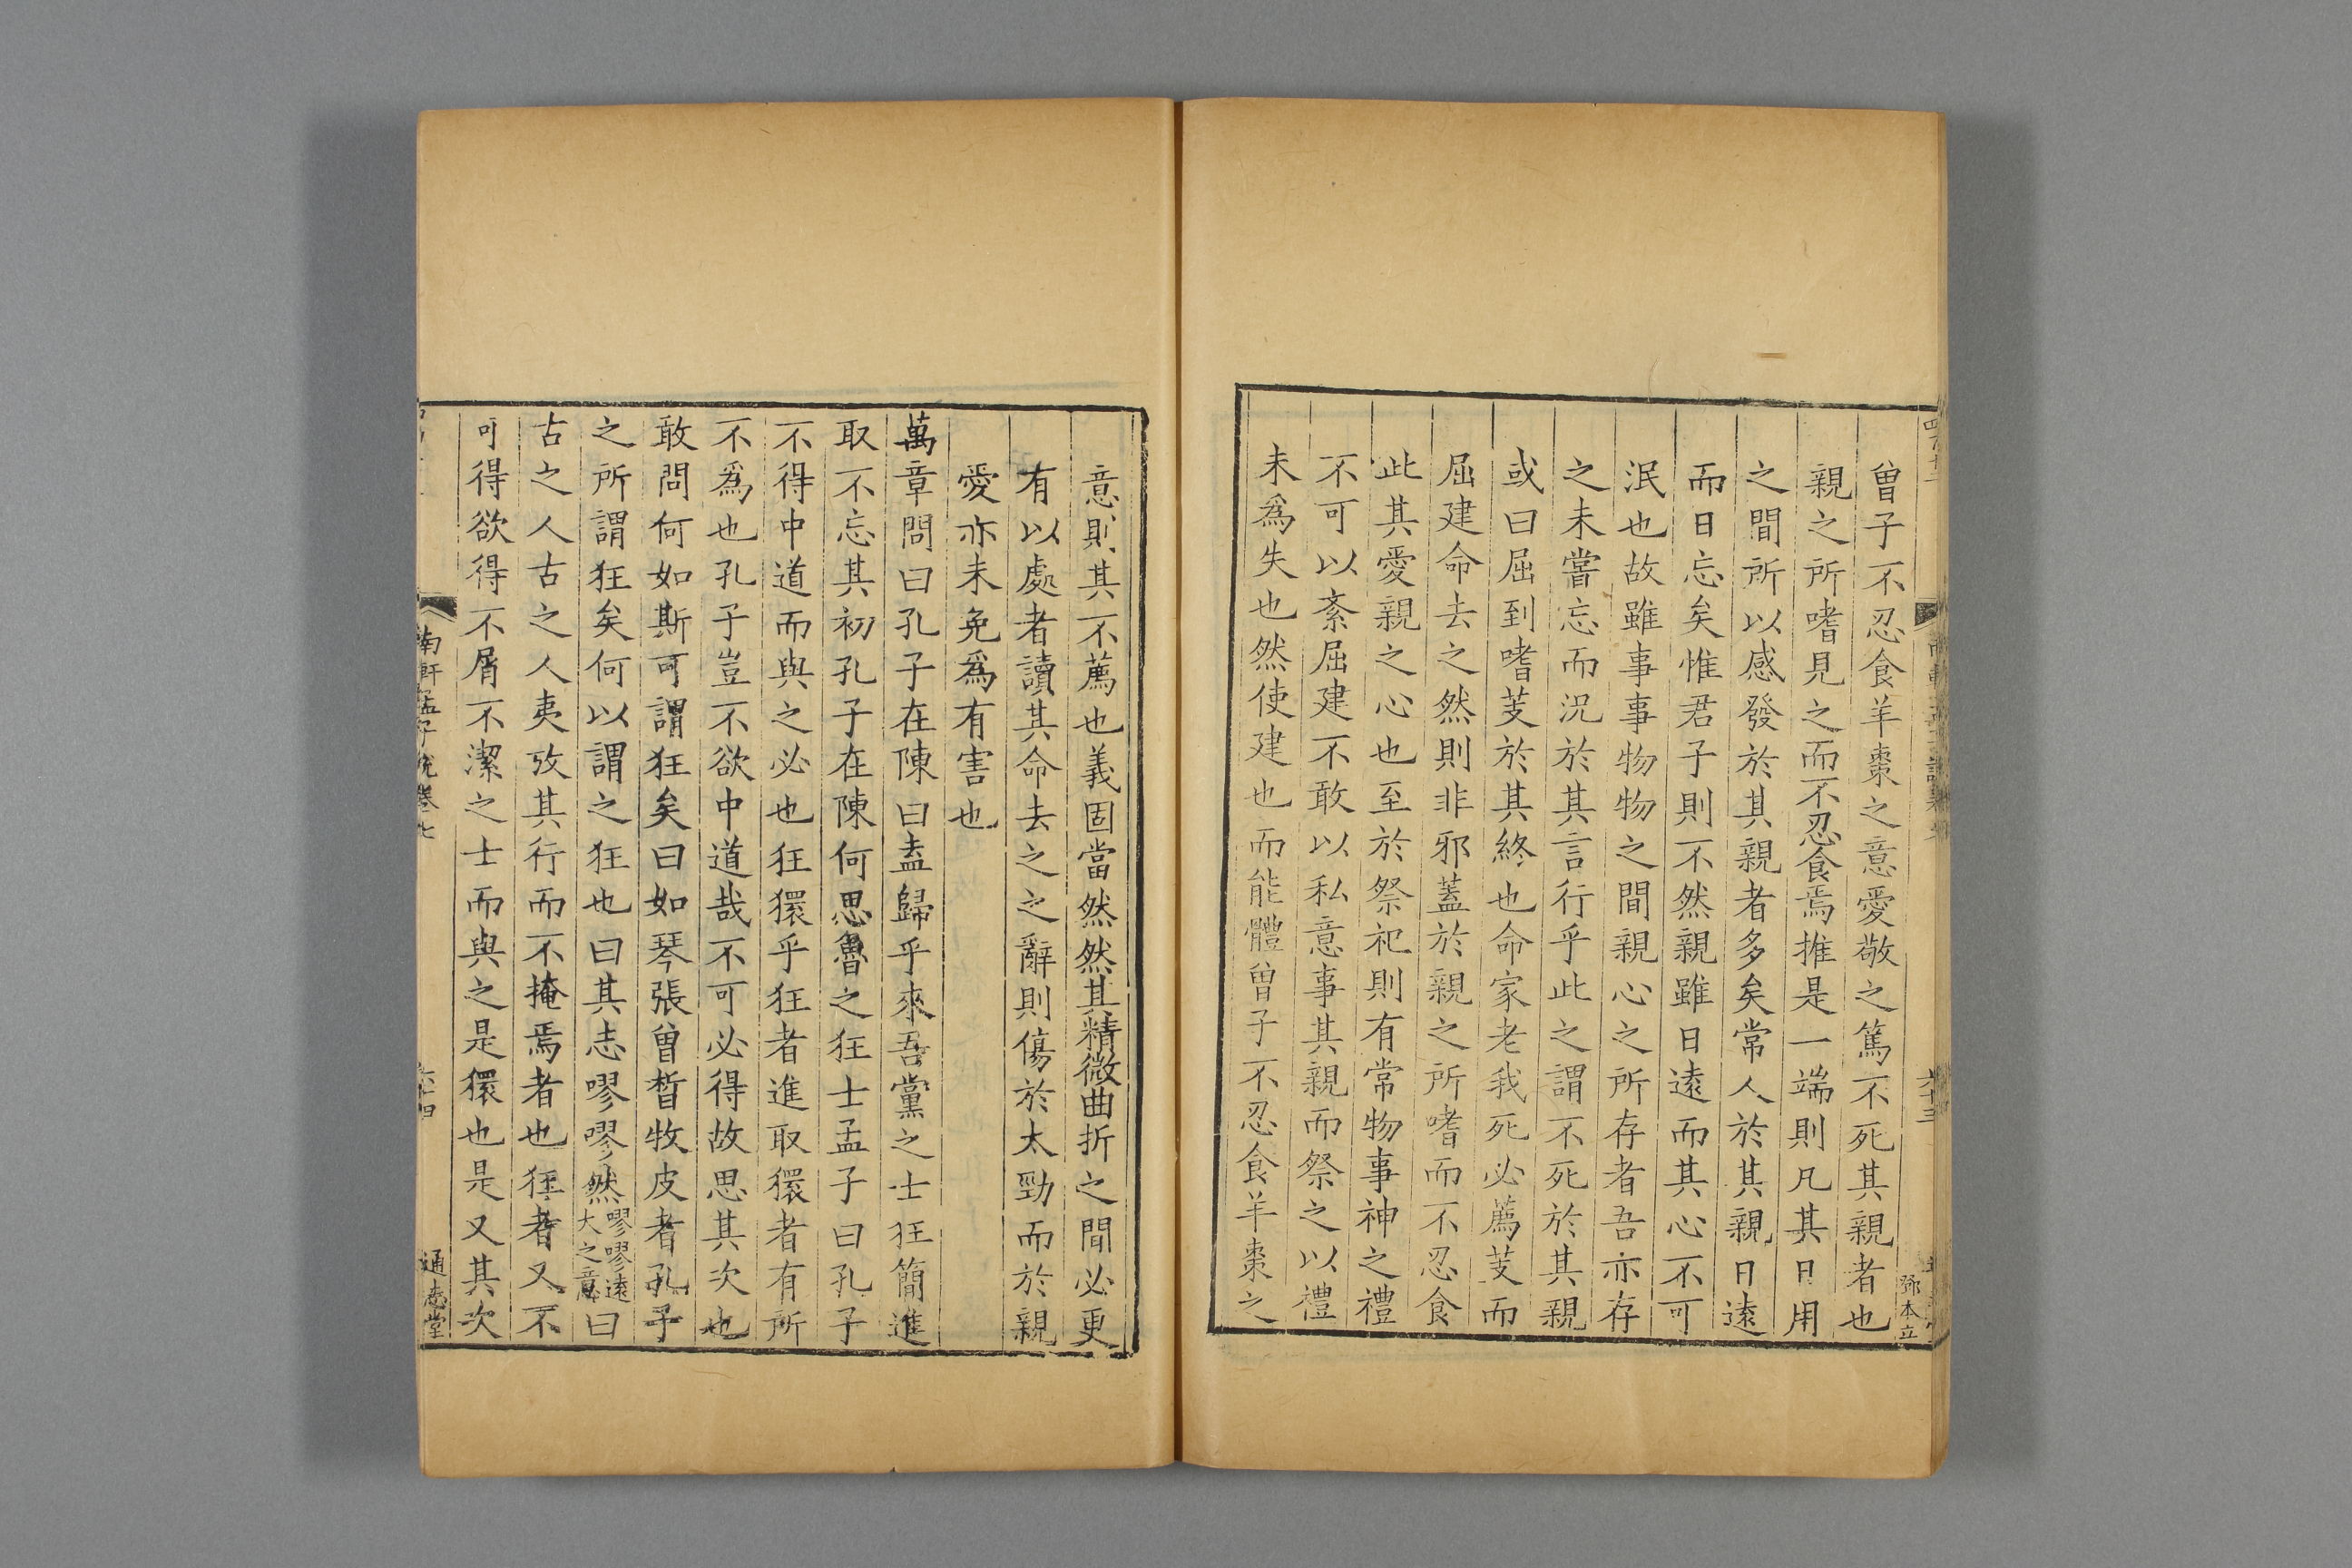 曾子不忍食羊棗之意愛敬之篤不死其親者也
親之所嗜見之而不忍食焉推是一端則凡其日用
之間所以感發於其親者多矣常人於其親日遠
而日忘矣惟君子則不然親雖日遠而其心不可
泯也故雖事事物物之間親心之所存者吾亦存
之未嘗忘而況於其言行乎此之謂不死於其親
或曰屈到嗜芰於其終也命家老我死必薦芰而
屈建命去之然則非邪蓋於親之所嗜而不忍食
此其愛親之心也至於祭祀則有常物事神之禮
不可以紊屈建不敢以私意事其親而祭之以禮
未爲失也然使建也而能體曾子不忍食羊棗之
六十三
弥本立
意則其不薦也義固當然然其精微曲折之間必更
有以處者讀其命去之之辭則傷於太勁而於親
愛亦未免爲有害也
萬章問曰孔子在陳曰盍歸乎來吾黨之士狂簡進
取不忘其初孔子在陳何思魯之狂士孟子曰孔子
不得中道而與之必也狂獧乎狂者進取獧者有所
不爲也孔子豈不欲中道哉不可必得故思其次也
敢問何如斯可謂狂矣曰如琴張曾晳牧皮者孔子
之所謂狂矣何以謂之狂也曰其志嘐嘐然嘐嘐遠大之意曰
古之人古之人夷攷其行而不掩焉者也狂者又不
可得欲得不屑不潔之士而與之是獧也是又其次
南軒孟子說卷七
六十四
通志堂